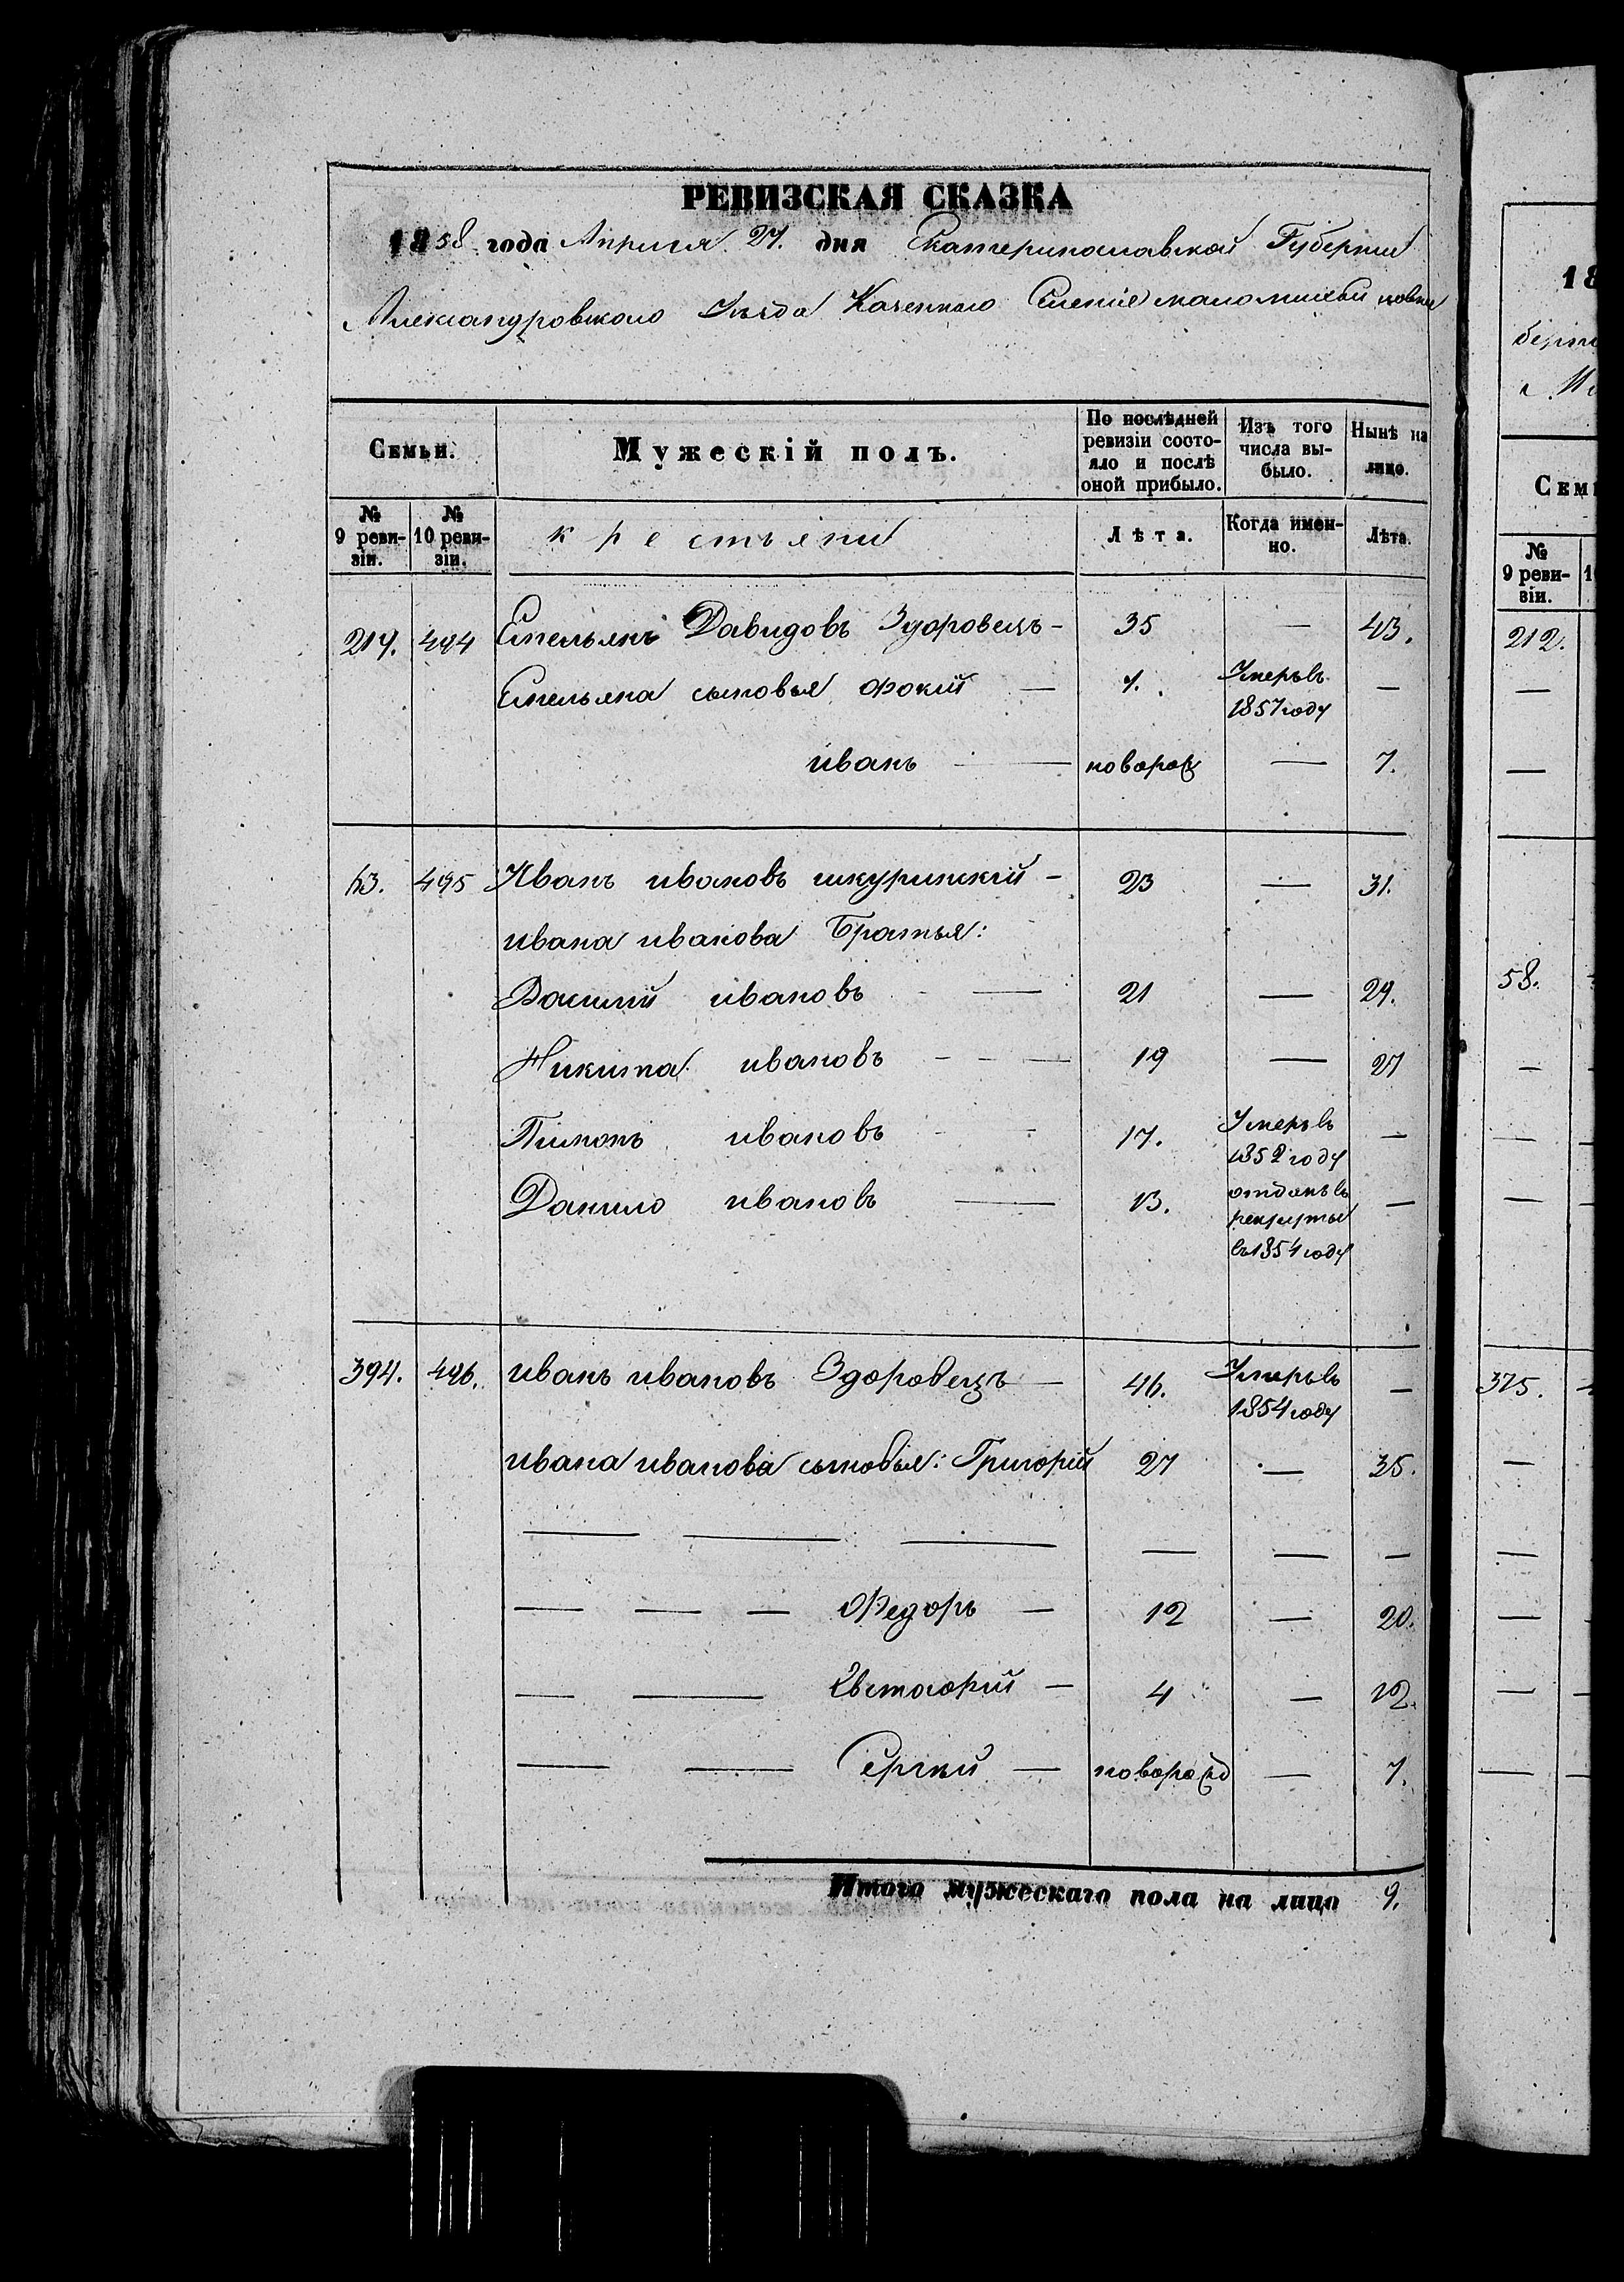 РЕВИЗСКАЯ СКАЗКА
1858 года Апреля 27. дня Екатеринославской Губернии
Александровского Уезда Казенного Селения маломихайловки
Семьи. Мужескій полъ. По послѣдней ревизіи состояло и послѣ оной прибыло. Изъ того числа выбыло. Нынѣ на лицо.
№ 9 ревизіи. № 10 ревизіи. крестьяни Лѣта. Когда именно. Лѣта.
219. 494 Емельянъ Давидовъ Здоровецъ - 35 — 43.
Емельяна сыновья Фокій — 7. Умеръ въ 1857 году —
иванъ — новорож — 7.
63. 495 Иванъ ивановъ шкуринский - 23 — 31.
ивана иванова Братья:
Василий ивановъ — 21 — 29.
Никита ивановъ - - — 19 — 27
Пимонъ ивановъ - - 17. Умеръ въ 1852 году —
Данило ивановъ — 13. отданъ въ рекруты въ 1854 году —
394. 496. иванъ ивановъ Здоровецъ — 46. Умеръ въ 1854 году —
ивана иванова сыновья: Григорій 27 — 35.
— — — — — —
— — — Федоръ — 12 — 20.
— — — 4 — 12.
— — Сергий — новорожд — 7.
Итого мужескаго пола на лицо 9.
18
Семь
№ 9 ревизіи.
212.
—
—
58.
—
—
—
375.
—
—
—
—
—